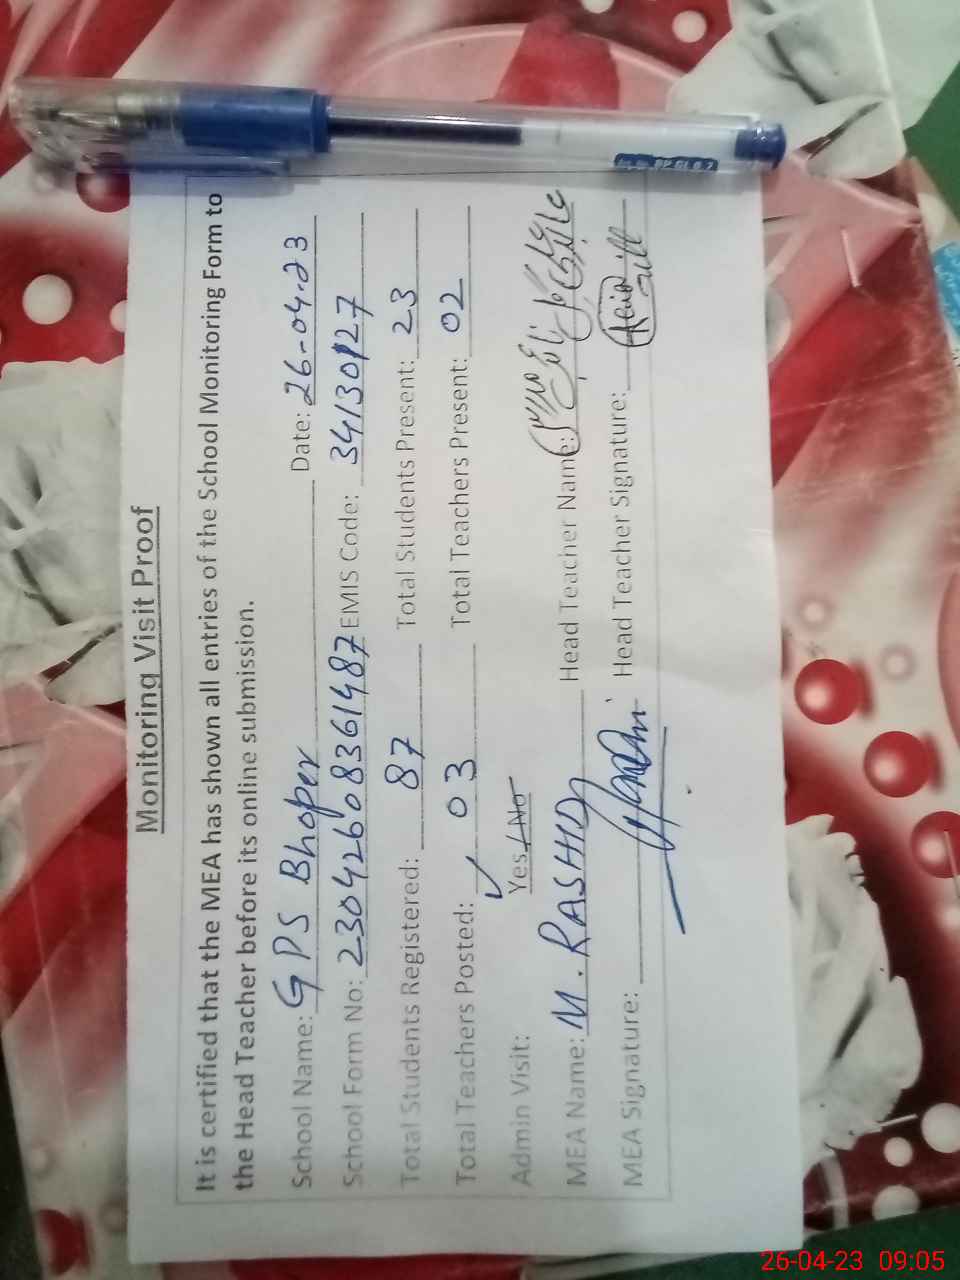 Monitoring Visit Proof
It is certified that the MEA has shown all entries of the School Monitoring Form to
the Head Teacher before its online submission.
School Name: GPS Bhoper Date: 26-04-23
School Form No: 23042608361487 EMIS Code: 34130127
Total Students Registered: 87 Total Students Present: 23
Total Teachers Posted: 03 Total Teachers Present: 02
Admin Visit: Yes/No
MEA Name: M. RASHID Head Teacher Name:
MEA Signature: Head Teacher Signature:
26-04-23 09:05